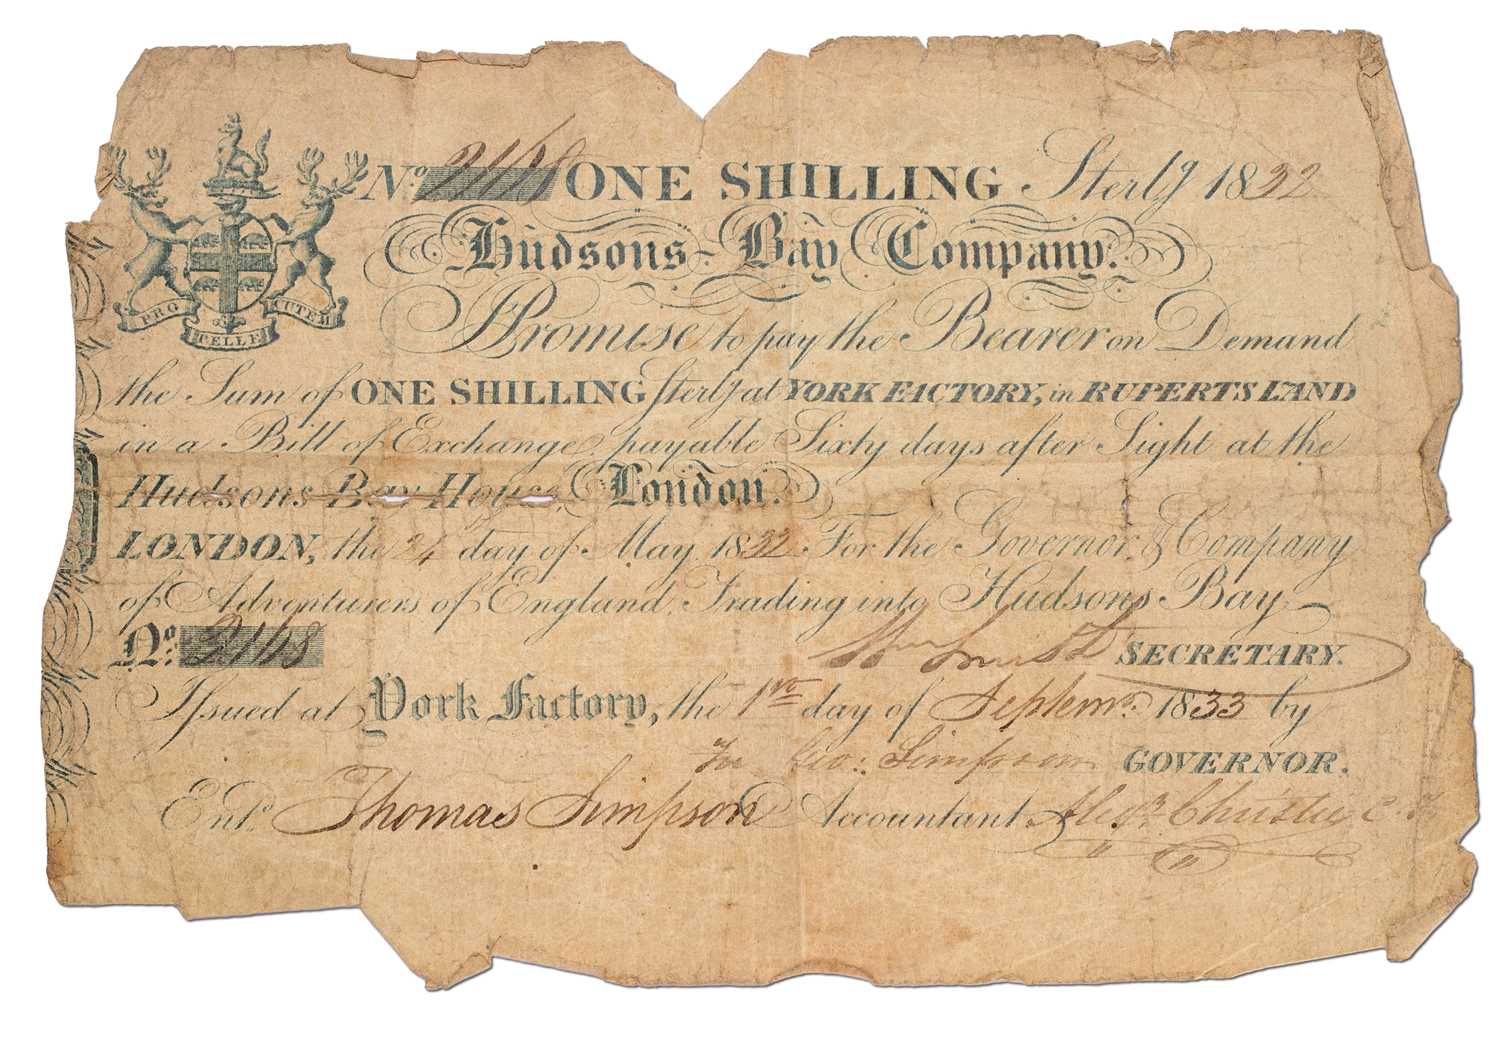 No. 2168 ONE SHILLING Sterlg 1832
Hudsons-Bay Company.
PRO PELLE CUTEM
Promise to pay the Bearer on Demand
the Sum of ONE SHILLING Sterlg at YORK FACTORY, in RUPERTS LAND
in a Bill of Exchange payable Sixty days after Sight at the
Hudsons Bay House, London.
LONDON, the 24 day of May 1832 For the Governor & Company
of Adventurers of England Trading into Hudsons Bay
No. 2168 Wm Smith SECRETARY.
Issued at York Factory, the 1st day of Septemr. 1833 by
Geo: Simpson GOVERNOR.
Entd. Thomas Simpson Accountant Alexr. Christie C.F.